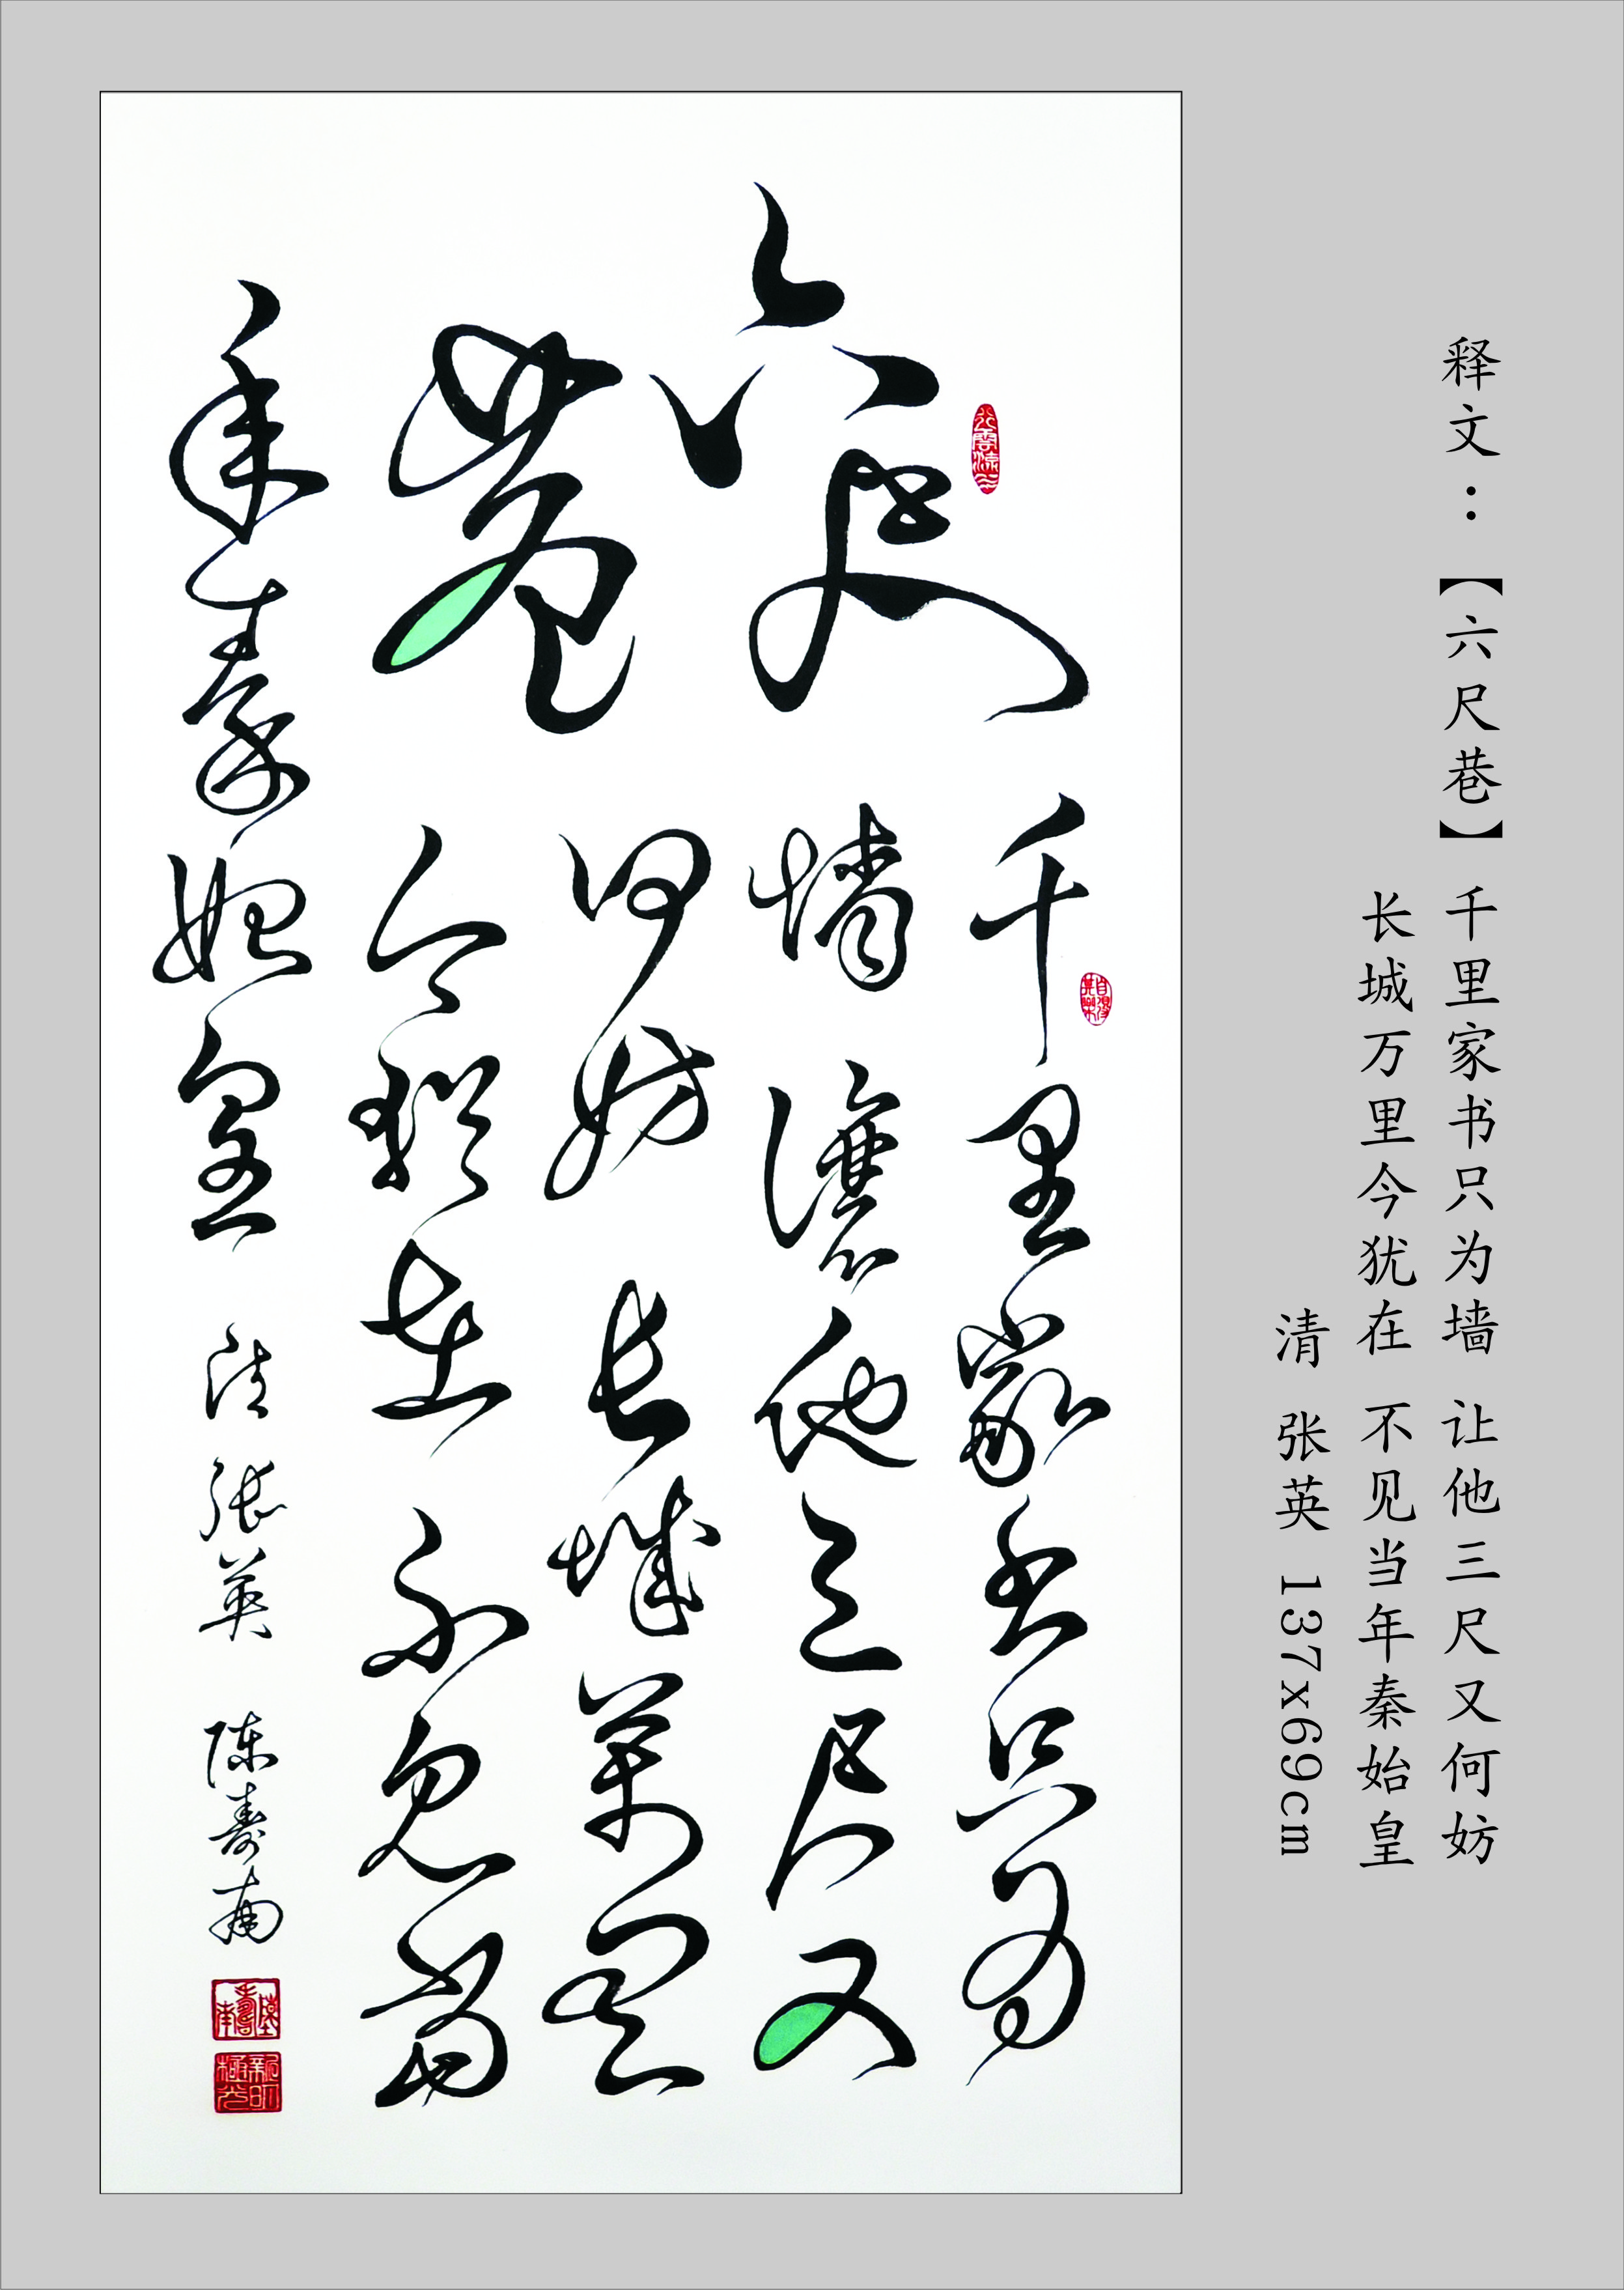 释文：【六尺巷】千里家书只为墙 让他三尺又何妨
长城万里今犹在 不见当年秦始皇
清 张英 137x69cm
六尺
巷
千里家书只为
墙让他三尺又
何妨长城万里
今犹在不见当
年秦始皇 清 张英 陈寿南